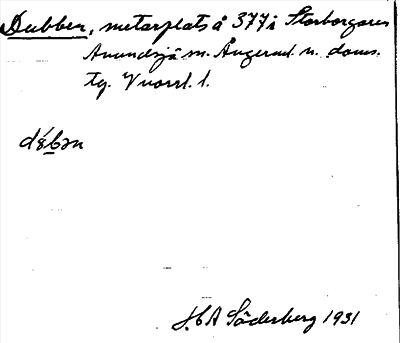 Dubben, metarplats å 377 i Storborgaren
Anundsjö sn. Ångerml. n. doms.
tg. V norrl. l.
dɞ́bən
H A Söderberg 1931